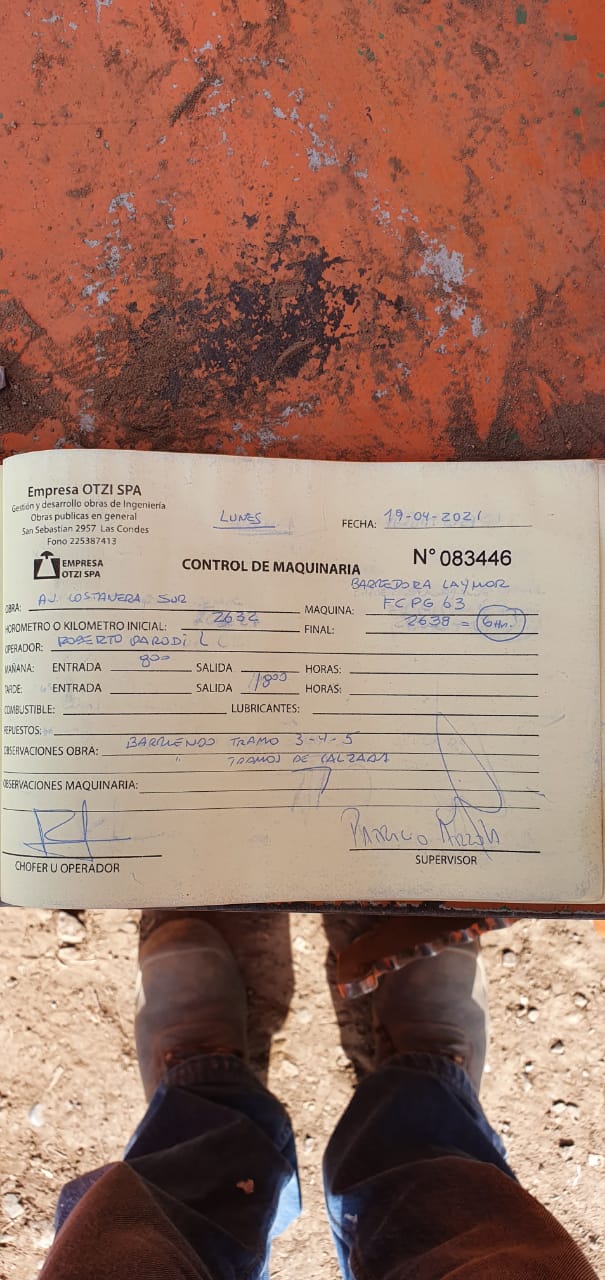 Empresa OTZI SPA
Gestión y desarrollo obras de Ingeniería
Obras publicas en general
San Sebastian 2957 Las Condes
Fono 225387413
LUNES
FECHA: 19-04-2021
EMPRESA
OTZI SPA
CONTROL DE MAQUINARIA
N° 083446
BARREDORA LAYMOR
OBRA: AV. COSTANERA SUR MAQUINA: FCPG 63
HOROMETRO O KILOMETRO INICIAL: 2632 FINAL: 2638 = 6 Hr.
OPERADOR: ROBERTO PARODI L
MAÑANA: ENTRADA 800 SALIDA HORAS:
TARDE: ENTRADA SALIDA 1800 HORAS:
COMBUSTIBLE: LUBRICANTES:
REPUESTOS:
OBSERVACIONES OBRA: BARRIENDO TRAMO 3-4-5
" TRAMOS DE CALZADA
OBSERVACIONES MAQUINARIA:
PATRICIO
CHOFER U OPERADOR SUPERVISOR